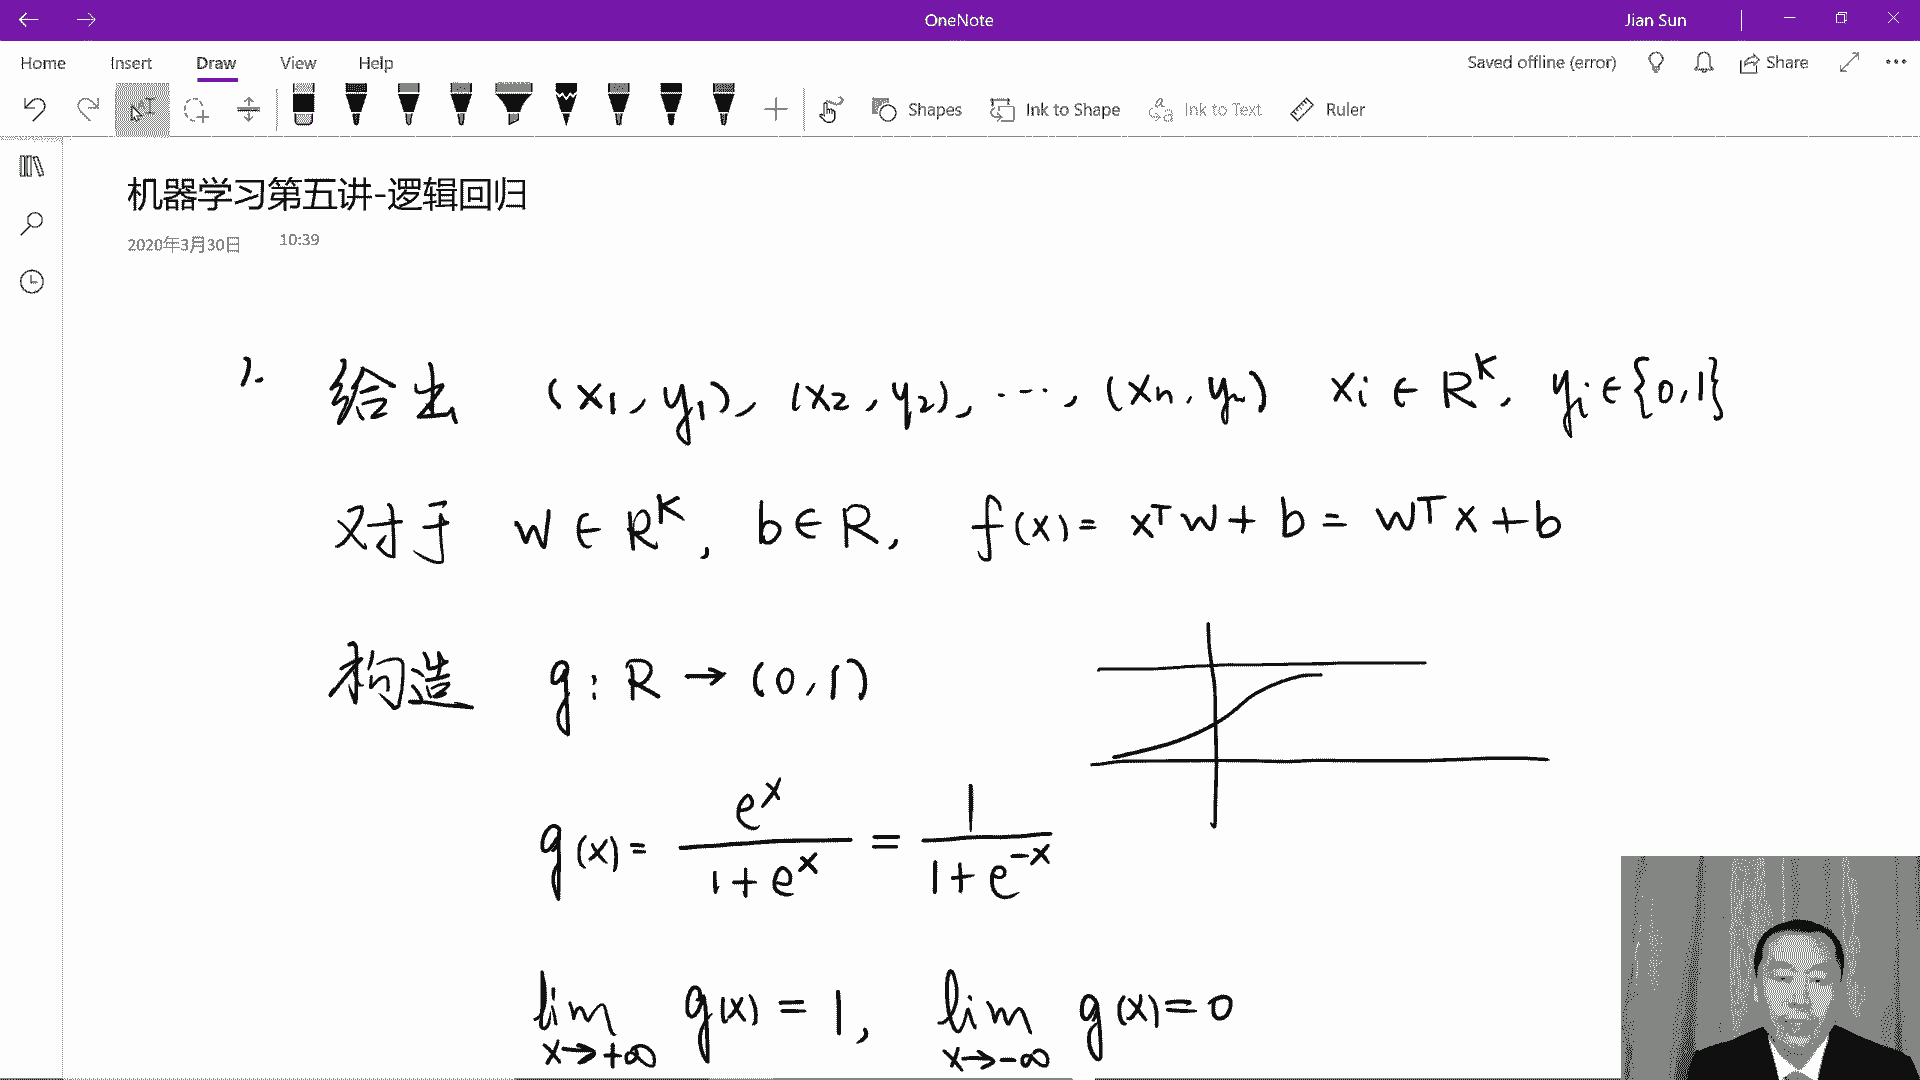 OneNote
Jian Sun
Home Insert Draw View Help
Saved offline (error) Share
Shapes Ink to Shape Ink to Text Ruler
机器学习第五讲-逻辑回归
2020年3月30日 10:39
1. 给出 (x₁, y₁), (x₂, y₂), ···, (xₙ, yₙ) xᵢ ∈ Rᴷ, yᵢ ∈ {0,1}
对于 w ∈ Rᴷ, b ∈ R, f(x) = xᵀw + b = wᵀx + b
构造 g: R → (0,1)
g(x) = e^x / (1+e^x) = 1 / (1+e^-x)
lim x→+∞ g(x) = 1, lim x→-∞ g(x) = 0